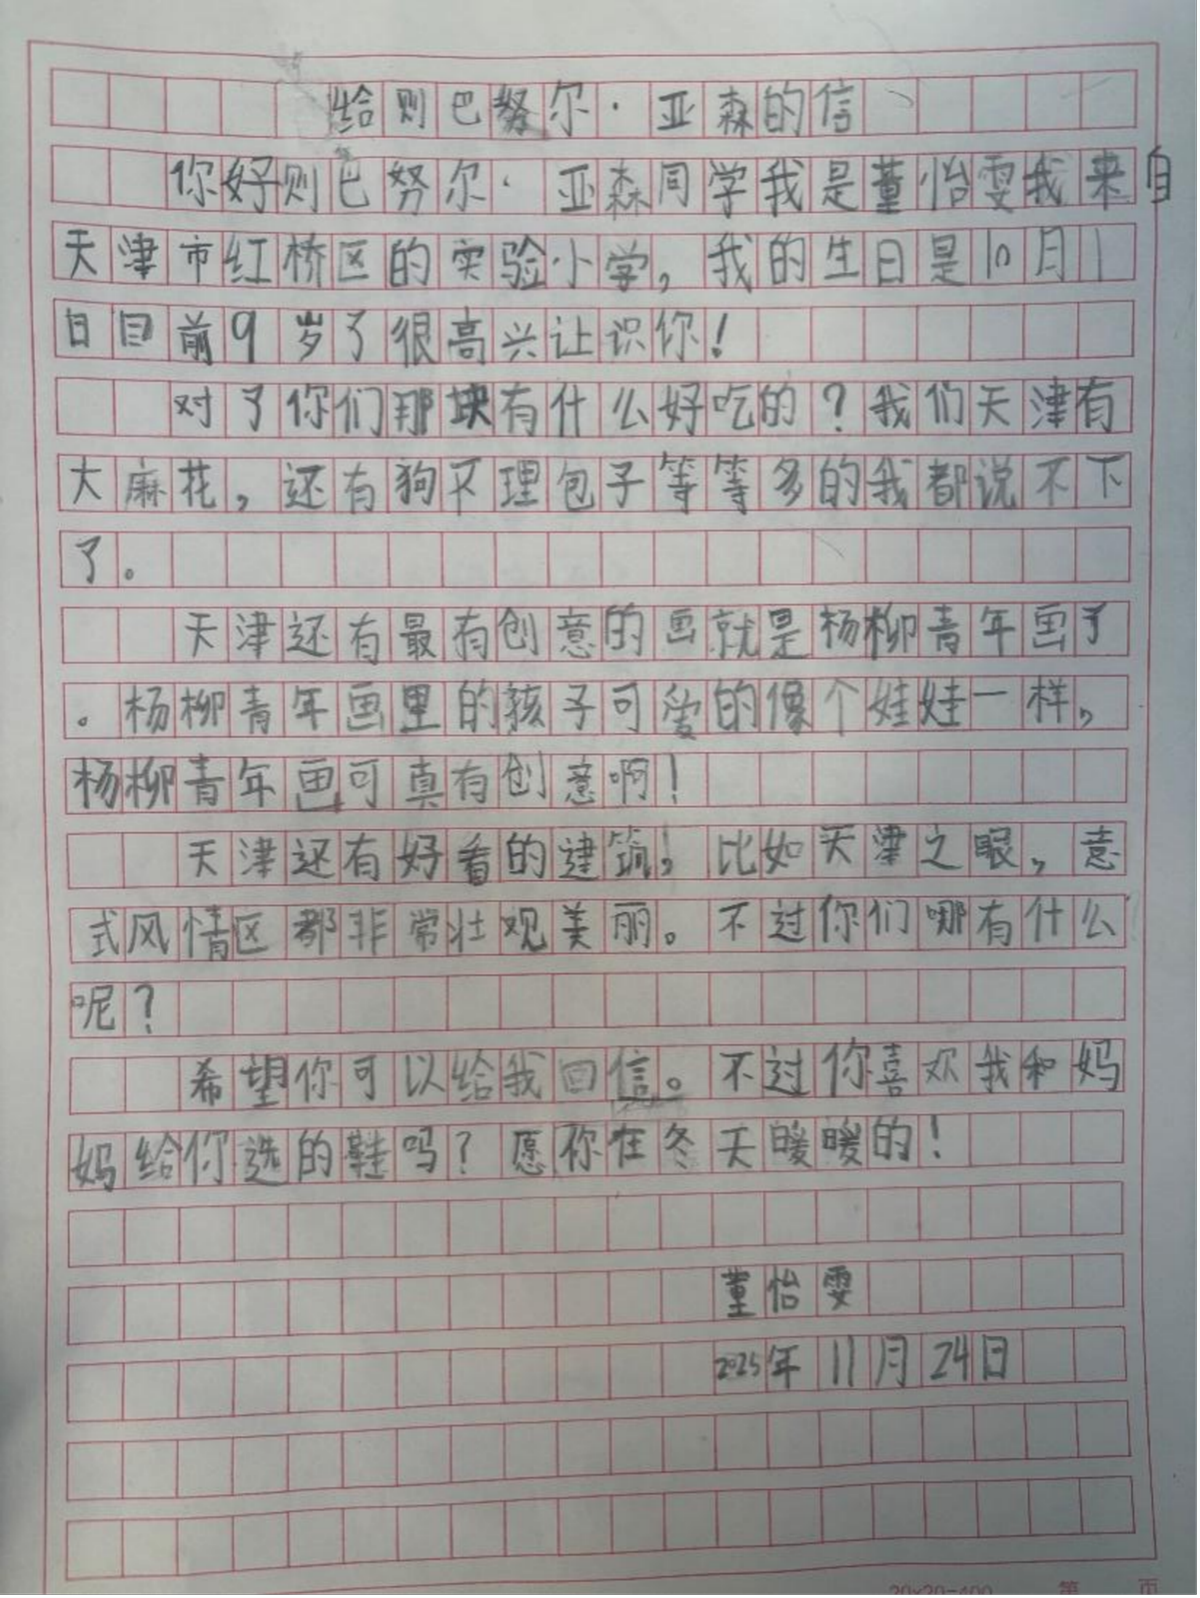 给则巴努尔·亚森的信
你好则巴努尔·亚森同学我是董怡雯我来自
天津市红桥区的实验小学，我的生日是10月1
日目前9岁了很高兴让识你！
对了你们那块有什么好吃的？我们天津有
大麻花，还有狗不理包子等等多的我都说不下
了。
天津还有最有创意的画就是杨柳青年画了
。杨柳青年画里的孩子可爱的像个娃娃一样，
杨柳青年画可真有创意啊！
天津还有好看的建筑，比如天津之眼，意
式风情区都非常壮观美丽。不过你们哪有什么
呢？
希望你可以给我回信。不过你喜欢我和妈
妈给你选的鞋吗？愿你在冬天暖暖的！
董怡雯
2025年11月24日
20×20=400 第 页